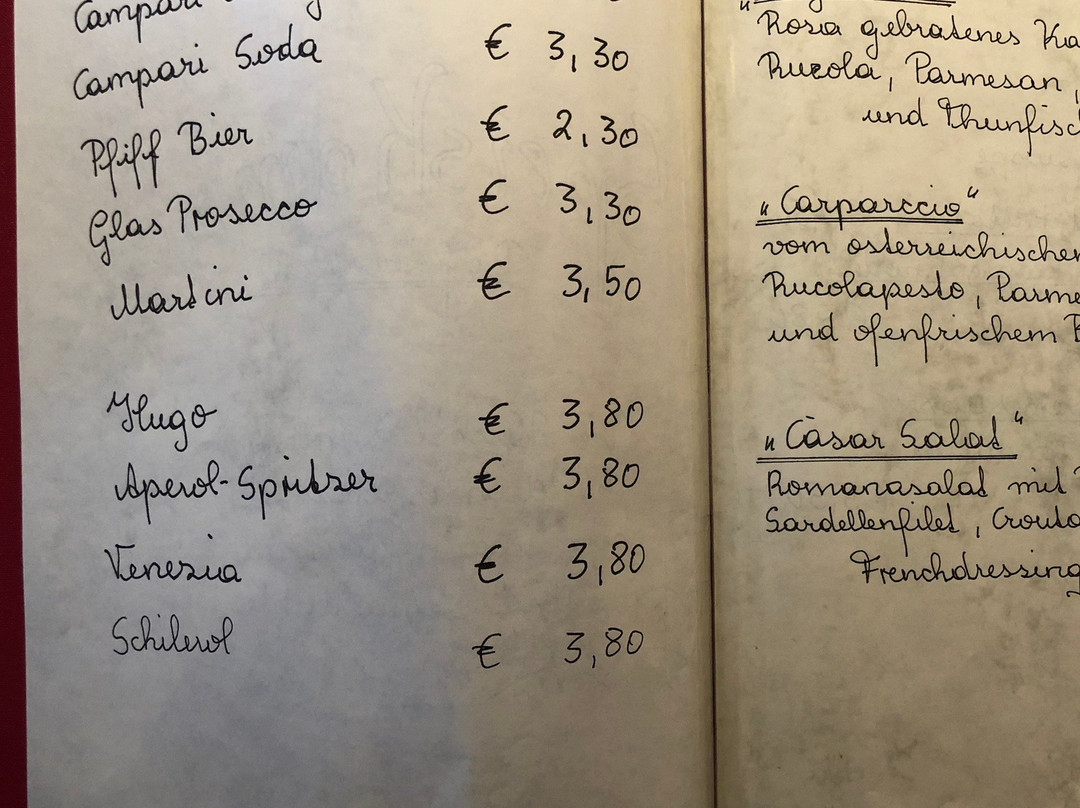 Campari
Campari Soda € 3,30
Pfiff Bier € 2,30
Glas Prosecco € 3,30
Martini € 3,50
Hugo € 3,80
Aperol-Spritzer € 3,80
Venezia € 3,80
Schilerol € 3,80
Rosa gebratenes
Rucola, Parmesan,
und Thunfisch
„Carparccio“
vom österreichischen
Rucolapesto, Parme
und ofenfrischem
„Cäsar Salat“
Romanasalat mit
Sardellenfilet, Crouto
Frenchdressing